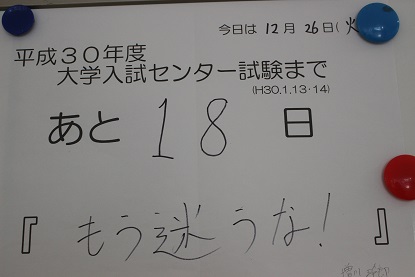 今日は 12月 26日(火
平成30年度
大学入試センター試験まで
(H30.1.13・14)
あと 18 日
『 もう迷うな! 』